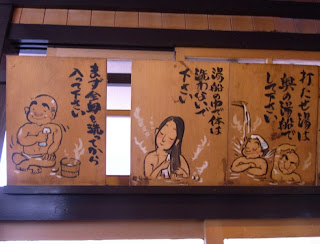 打たせ湯は
奥の湯船で
して下さい
湯船の中で体は
洗わないで
下さい
まず全身を洗ってから
入って下さい